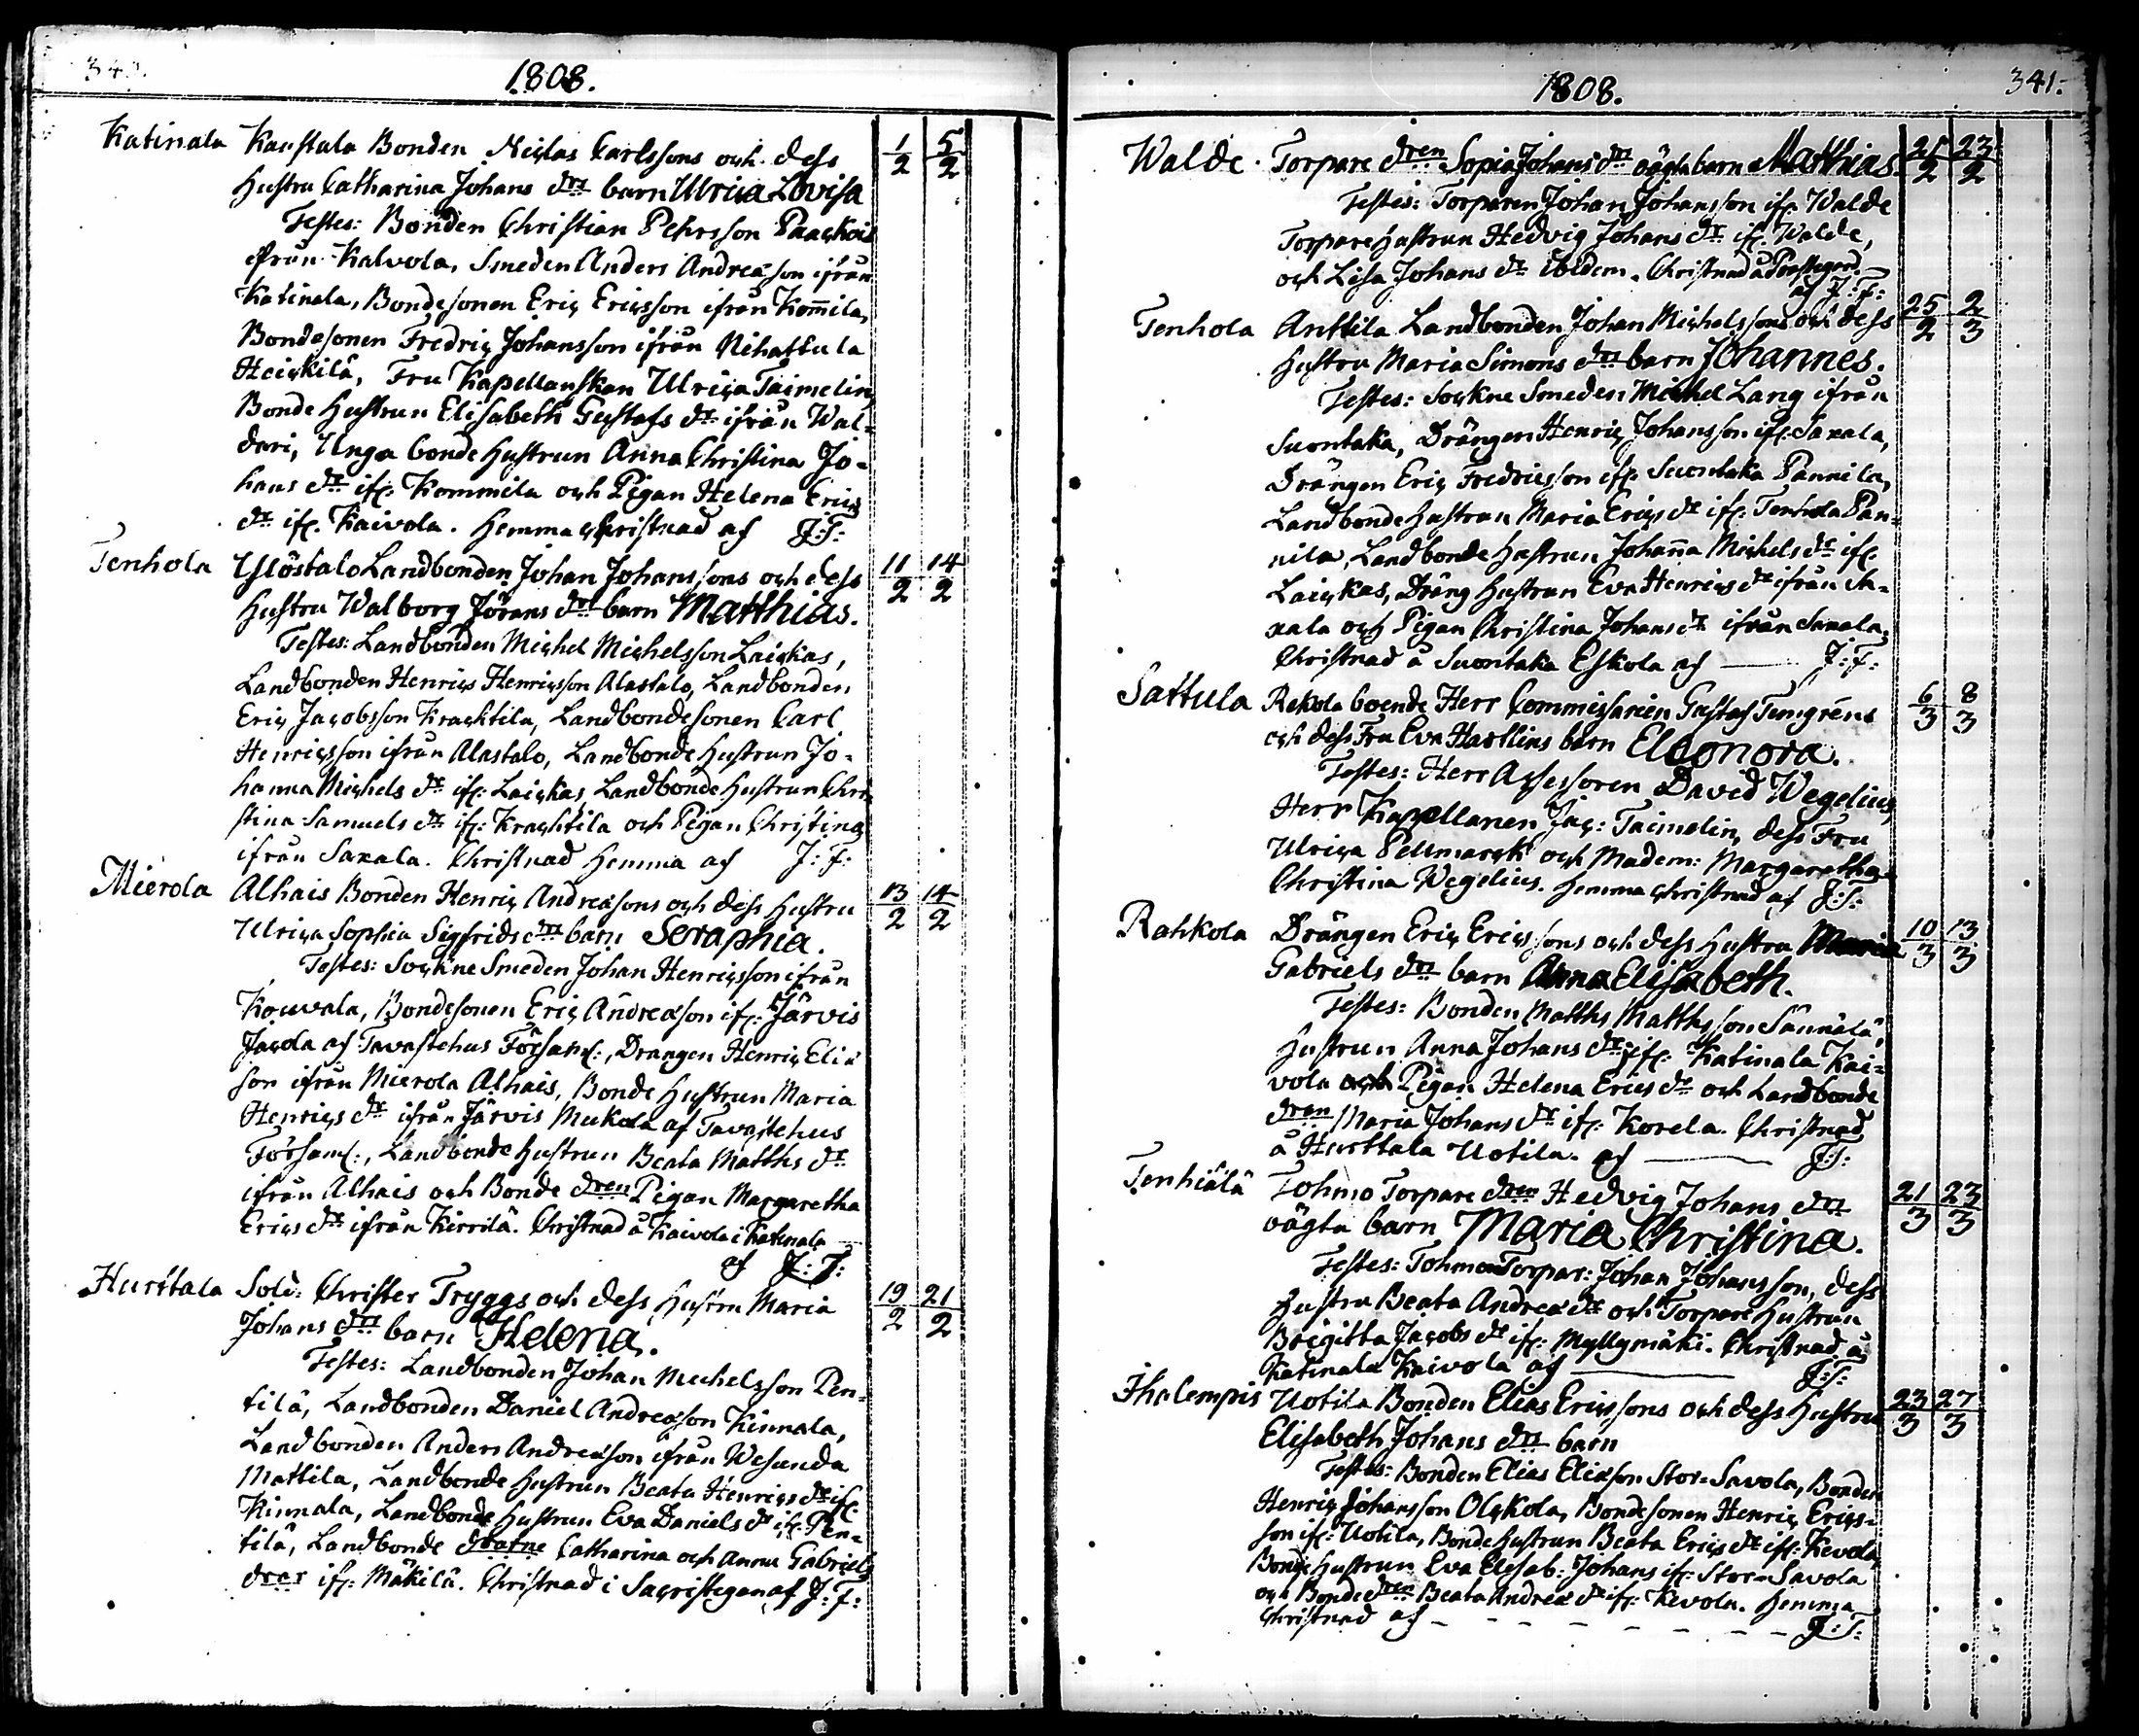 340.
1808.
Katinala Kaustala Bonden Niclas Carlssons och dess 1/2 5/2
Hustru Catharina Johans drs barn Ulrica Lovisa
Testes: Bonden Christian Pehrsson Paackois
ifrån Kalvola, Smeden Anders Andreæson ifrån
Katinala, Bondesonen Eric Ericsson ifrån Kom̄ila,
Bondesonen Fredric Johansson ifrån Nihattula
Heickilä, Fru Kapellanskan Ulrica Taimelin,
Bonde Hustrun Elisabeth Gustafs dr ifrån Wal=
dari, Unga bonde Hustrun Anna Christina Jo=
hans dr ifr: Kommila och Pigan Helena Erics
dr ifr. Kaivola. Hemma christnad af J:F:
Tenhola Ylöstalo Landbonden Johan Johanssons och dess 11/2 14/2
Hustru Walborg Jörans drs barn Matthias.
Testes: Landbonden Michel Michelsson Laickas,
Landbonden Henrics Henricsson Alastalo, Landbonden
Eric Jacobsson Krachtila, Landbondesonen Carl
Henricsson ifrån Alastalo, Landbonde Hustrun Jo=
hanna Michels dr ifr: Laickas, Landbonde Hustrun Chri
stina Samuels dr ifr: Krachtila och Pigan Christina
ifrån Saxala. Christnad Hemma af J:F:
Mierola Alhais Bonden Henric Andreæsons och dess Hustru 13/2 14/2
Ulrica Sophia Sigfrids drs barn Seraphia.
Testes: Sockne Smeden Johan Henricsson ifrån
Kouvala, Bondesonen Eric Andreæson ifr: Järvis
Jacola af Tavastehus Församl:, Drängen Henric Eliæ
son ifrån Mierola Alhais, Bonde Hustrun Maria
Henrics dr ifrån Järvis Mukala af Tavastehus
Församl:, Landbonde Hustrun Beata Matths dr
ifrån Alhais och Bonde dren Pigan Margaretha
Erics dr ifrån Kirrilä. Christnad å Kaivola i Katinala
af J:F:
Hurttala Sold: Christer Tryggs och dess Hustru Maria 19/2 21/2
Johans drs barn Helena.
Testes: Landbonden Johan Michelsson Pen=
tilä, Landbonden Daniel Andreæson Kinnala,
Landbonden Anders Andreæson ifrån Wesunda
Mattila, Landbonde Hustrun Beata Henrics dr ifr:
Kinnala, Landbonde Hustrun Eva Daniels dr ifr: Pen=
tilä, Landbonde drarne Catharina och Anna Gabriels
drar ifr: Mäkilä. Christnad i Sacristegan af J:F:
1808.
341.
Walde. Torpare dren Sopia Johans drs oägta barn Matthias. 21/2 23/2
Testes: Torparen Johan Johansson ifr Walde
Torpare Hustrun Hedvig Johans dr ifr. Walde,
och Lisa Johans dr ibidem. Christnad å Prestegård.
af J:F:
Tenhola Anttila Landbonden Johan Michelssons och dess 25/2 2/3
Hustru Maria Simons drs barn Johannes.
Testes: Sockne Smeden Michel Lang ifrån
Suontaka, Drängen Henric Johansson ifr: Saxala,
Drängen Eric Fredricsson ifr. Suontaka Pannila,
Landbonde Hustrun Maria Erics dr ifr: Tenhola Pan=
nila, Landbonde Hustrun Johan̄a Michels dr ifr.
Laickas, Dräng Hustrun Eva Henrics dr ifrån Sa=
xala och Pigan Christina Johans dr ifrån Saxala.
Christnad å Suontaka Eskola af J:F:
Sattula Rekola boende Herr Commissarien Gustaf Temgréns 6/3 8/3
och dess Fru Eva Hartlins barn Eleonora.
Testes: Herr Assessoren David Wegelius,
Herr Kapellanen Jac: Taimelin, dess Fru
Ulrica Pellmarck och Madem: Margaretha
Christina Wegelius. Hemma christnad af J:F:
Rahkola Drängen Eric Ericssons och dess Hustru Maria 10/3 13/3
Gabriels drs barn Anna Elisabeth.
Testes: Bonden Matths Matthsson Sännälä,
Hustrun Anna Johans dr ifr. Katinala Kai=
vola och Pigan Helena Erics dr och Landbonde
dren Maria Johans dr ifr: Korela. Christnad
å Hurttala Uotila. af J:F:
Tenhiälä Tohmo Torpare dren Hedvig Johans drs 21/3 23/3
oägta barn Maria Christina.
Testes: Tohmo Torpar: Johan Johansson, dess
Hustru Beata Andreæ dr och Torpare Hustrun
Brigitta Jacobs dr ifr: Myllymäki. Christnad å
Katinala Kaivola af J:F:
Ihalempis Uotila Bonden Elias Ericssons och dess Hustru 23/3 27/3
Elisabeth Johans drs barn
Testes: Bonden Elias Eliæson Stor=Savola, Bonden
Henric Johansson Olckola, Bondesonen Henric Erics=
son ifr: Uotila, Bonde Hustrun Beata Erics dr ifr: Kevola,
Bonde Hustrun Eva Elisab: Johans ifr: Stor=Savola
och Bonde dren Beata Andreæ dr ifr: Kevola. Hemma
christnad af J:F: